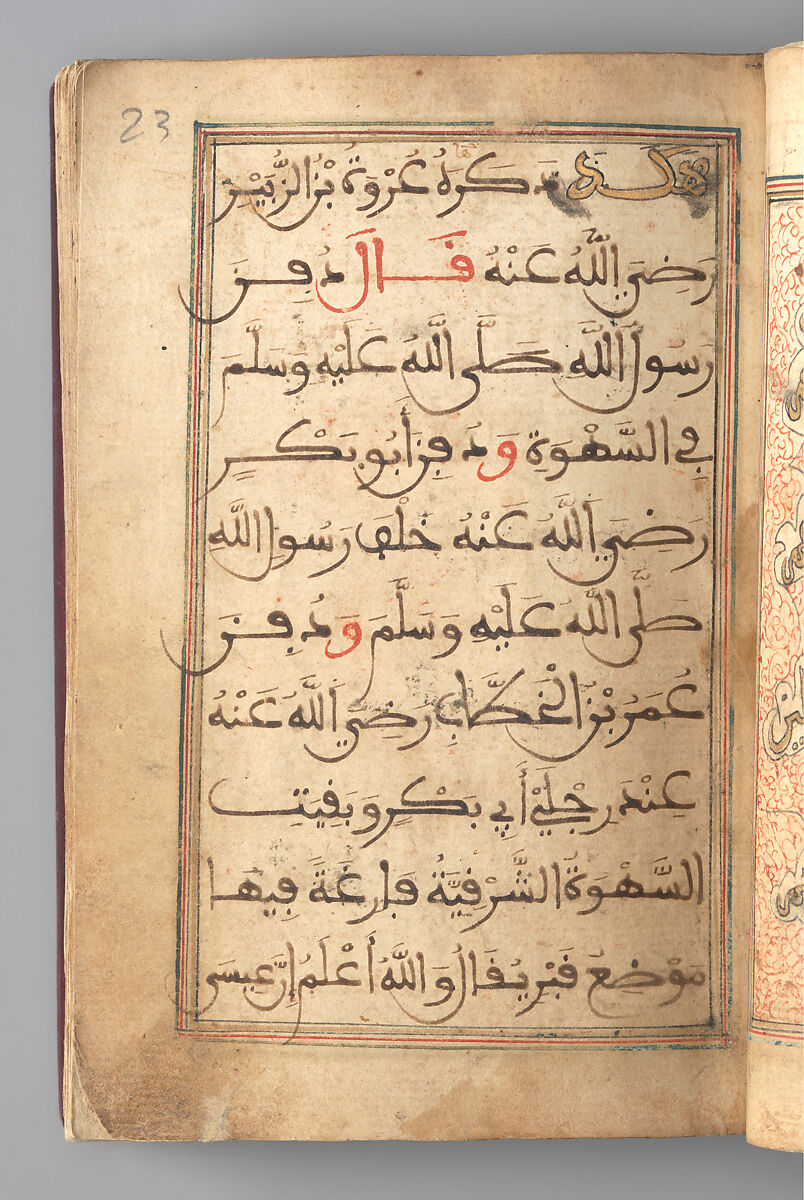 23
هَكَذَا ذَكَرَهُ عُرْوَةُ بْنُ الزُّبَيْرِ
رَضِيَ اللَّهُ عَنْهُ قَالَ دُفِنَ
رَسُولُ اللَّهِ صَلَّى اللَّهُ عَلَيْهِ وَسَلَّمَ
فِي السَّهْوَةِ وَدُفِنَ أَبُو بَكْرٍ
رَضِيَ اللَّهُ عَنْهُ خَلْفَ رَسُولِ اللَّهِ
صَلَّى اللَّهُ عَلَيْهِ وَسَلَّمَ وَدُفِنَ
عُمَرُ بْنُ الْخَطَّابِ رَضِيَ اللَّهُ عَنْهُ
عِنْدَ رِجْلَيْ أَبِي بَكْرٍ وَبَقِيَتِ
السَّهْوَةُ الشَّرْقِيَّةُ فَارِغَةً فِيهَا
مَوْضِعُ قَبْرٍ يُقَالُ وَاللَّهُ أَعْلَمُ إِنَّ عِيسَى